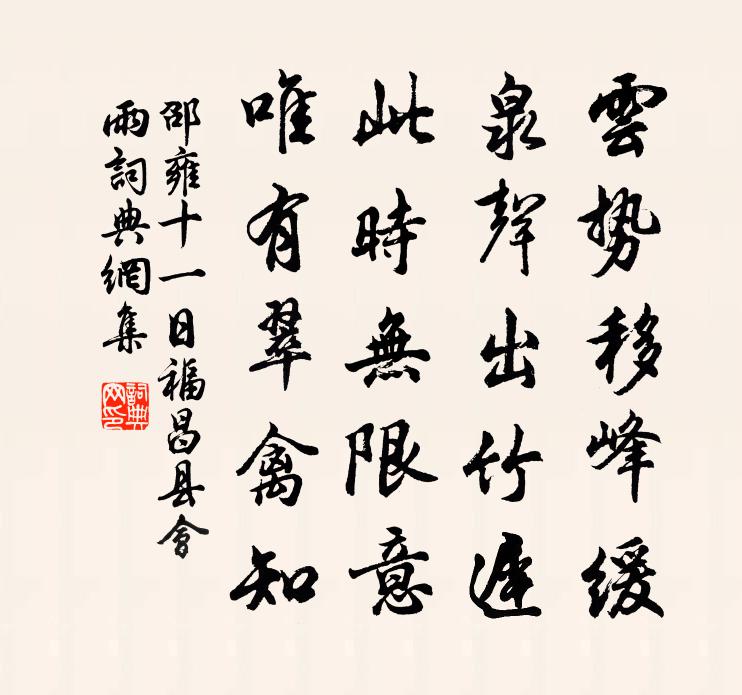 雲势移峰緩
泉聲出竹遲
此時無限意
唯有翠禽知
邵雍十一日福昌县會
雨詞典網集
詞典網印